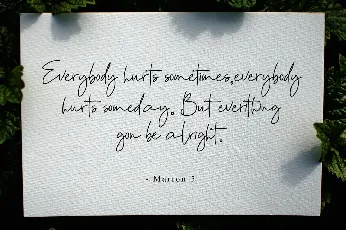 Everybody hurts sometimes, everybody
hurts someday. But everthing
gon be alright.
- Maroon 5